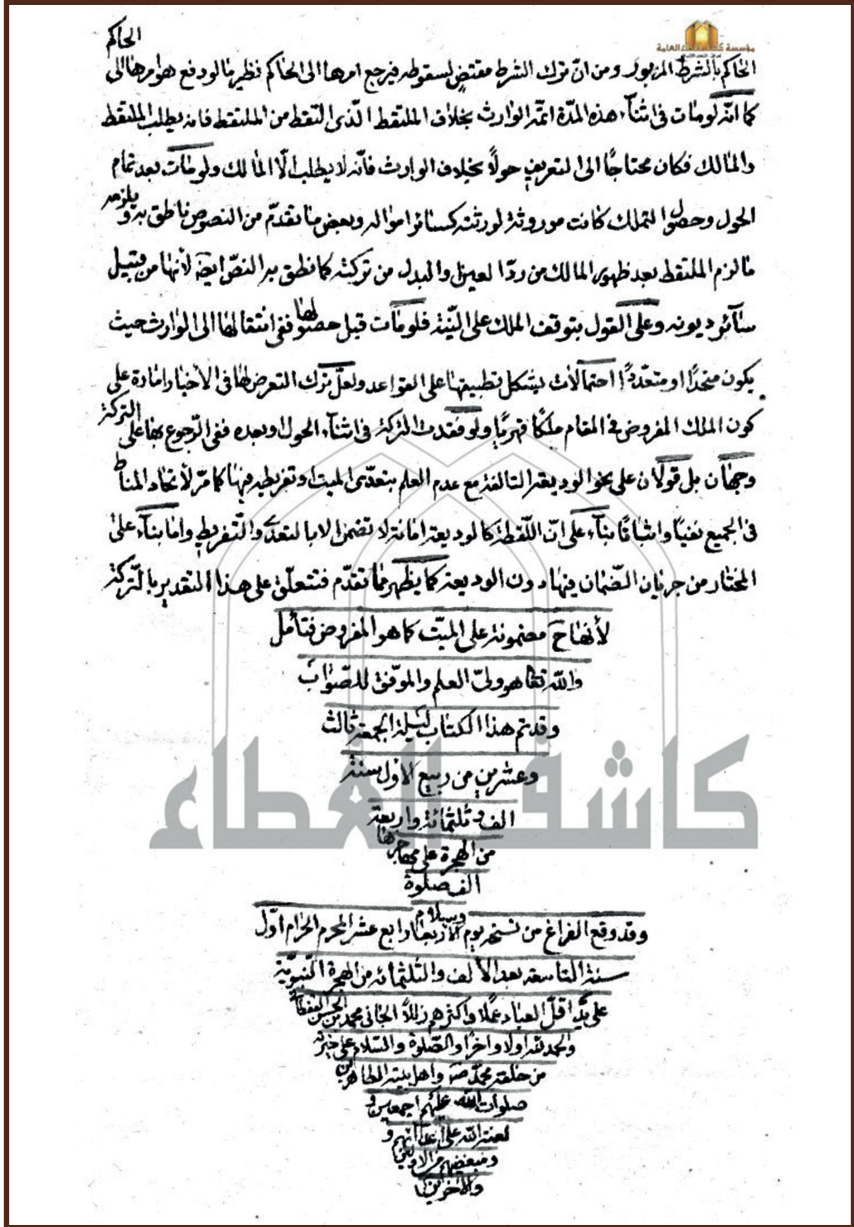 الحاكم
الحاكم بالشرط المزبور ومن ان ترك الشرط مقتض لسقوطه فيرجع امرها الى الحاكم نظير ما لو دفع هو امرها الى
كما انه لومات فى اثناء هذه المدة اتمه الوارث بخلاف الملتقط الذى التقط من الملتقط فانه يطلب الملتقط
والمالك فكان محتاجًا الى التعريف حولًا بخلاف الوارث فأنه لا يطلب الّا المالك ولومات بعد تمام
الحول وحصول التملك كانت موروثة لورثته كسائر امواله وبعض ما تقدم من النصوص ناطق به ويلزمه
مالزم الملتقط بعد ظهور المالك من ردّ العين او البدل من تركته كما نطق به النصّ ايضًا لأنها من قبيل
سآئر ديونه وعلى القول بتوقف الملك على النيّة فلومات قبل حصولها ففى انتقالها الى الوارث حيث
يكون متحدًا او متعددًا احتمالات يشكل تطبيقها على القواعد ولعل ترك التعرض لها فى الاخبار امارة على
كون الملك المفروض فى المقام ملكًا قهريًا ولو فقدت التركة فى اثناء الحول او بعده ففى الرجوع بها على التركة
وجهان بل قولان على نحو الوديعة التالفة مع عدم العلم بتعدّى الميت او تفريطه فيها كما مرّ لأتحاد المناط
فى الجميع نفيًا واثباتًا بنآء على انّ اللّقطة كالوديعة امانة لا تضمن الا بالتعدى والتّفريط واما بنآء على
المختار من جريان الضّمان فيها دون الوديعة كما يظهر مما تقدّم فتتعلّق على هذا التقدير بالتركة
لأنها ح مضمونة على الميّت كما هو المفروض فتأمل
والله تعا هو ولىّ العلم والموفّق للصّواب
وقد تم هذا الكتاب ليلة الجمعة ثالث
وعشرين من ربيع الاول سنة
الف وثلثمائة واربعة
من الهجرة على مهاجرها
الف صلوة
وسلام
وقد وقع الفراغ من نسخه يوم الاربعا رابع عشر المحرم الحرام اوّل
سنة التاسعة بعد الألف والثلثمائة من الهجرة النبويّة
على يد اقلّ العباد عملًا واكثرهم زللًا الجانى محمد بن الحسن
والحمد لله اولا واخرًا والصّلوة والسّلام على خيرته
من خلقه محمد ص واهل بيته الطاهرين
صلوات الله عليهم اجمعين و
لعنة الله على اعدائهم و
ومبغضيهم من الاولين
والاخرين
كاشف الغطاء
مؤسسة كاشف الغطاء العامة